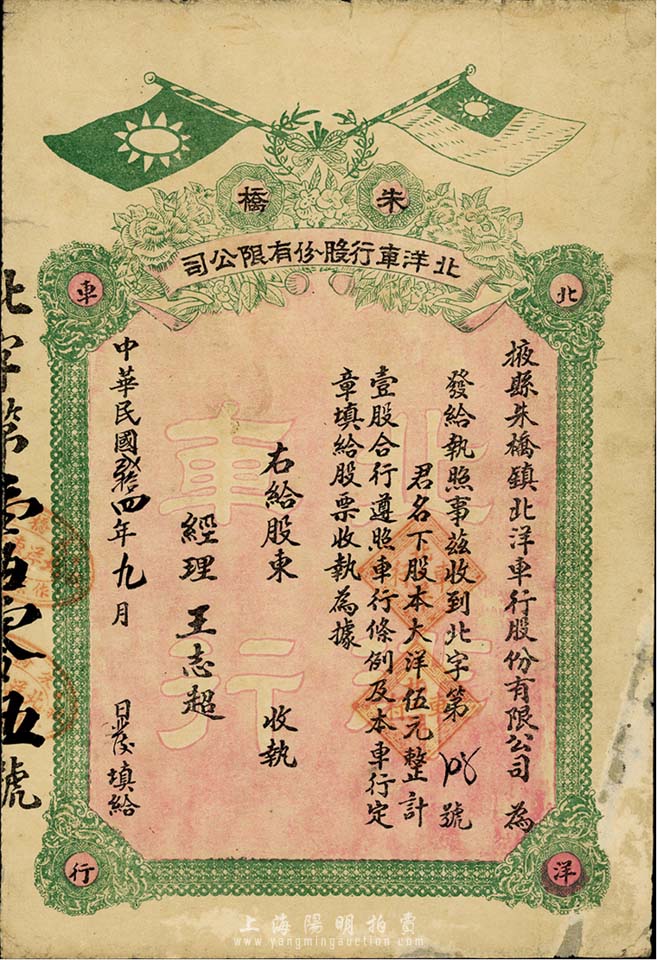 朱橋
北洋車行股份有限公司
北
洋
車
行
北洋
車行
掖縣朱橋鎮北洋車行股份有限公司 為
發給執照事茲收到北字第 號
君名下股本大洋伍元整計
壹股合行遵照車行條例及本車行定
章填給股票收執為據
右給股東 收執
經理 王志超
中華民國 四年九月 日 填給
北字第壹百零五號
上海陽明拍賣
www.yangmingauction.com